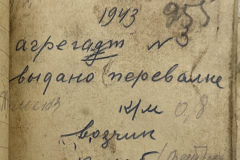 1943
955
агрегадт N 3
выдано перевалке
к/м 0,8
возчик